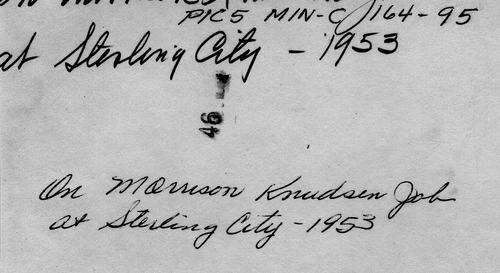 PICS MIN-C J164-95
at Sterling City - 1953
46
On Morrison Knudsen Job
at Sterling City - 1953